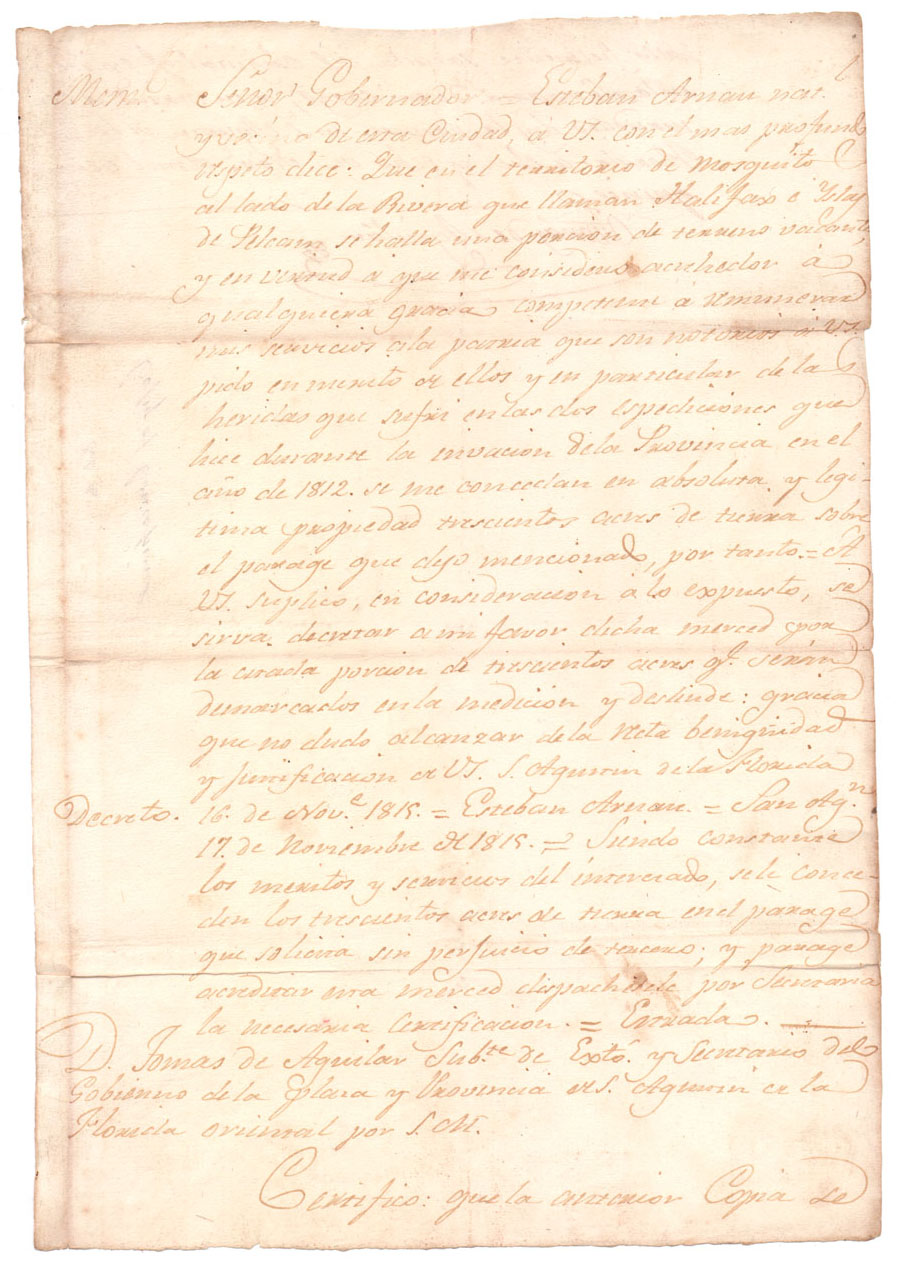 Meml. Señor Gobernador = Esteban Arnau nat.
y vecino de esta Ciudad, a VS. con el mas profundo
respeto dice: Que en el territorio de Mosquito
al lado de la Rivera que llaman Halifax é Yslas
de Pelcan se halla una porcion de terreno vacante,
y en virtud a que me considero acrehedor á
qualquiera gracia competente á remunerar
mis servicios a la patria que son notorios á VS.
pido en merito de ellos y en particular de las
heridas que sufri en las dos espediciones que
hice durante la invacion de la Provincia en el
año de 1812. se me concedan en absoluta y legi-
tima propiedad trescientos acres de tierra sobre
el parage que dejo mencionado, por tanto. = Á
VS. suplico, en consideracion á lo expuesto, se
sirva decretar a mi favor dicha merced por
la citada porcion de trescientos acres qe. serán
demarcados en la medicion y deslinde: gracia
que no dudo alcanzar de la recta benignidad
y justificacion de VS. S. Agustin de la Florida
16. de Nove. 1815. = Esteban Arnau. = San Agn.
Decreto. 17. de Noviembre de 1815. = Siendo constante
los meritos y servicios del interezado, se le conce-
den los trescientos acres de tierra en el parage
que solicita sin perjuicio de tercero; y para qe
acreditar esta merced dispachesele por Secretaria
la necesaria Certificacion. = Estrada.
D. Tomas de Aguilar Subte. de Exto. y Secretario del
Gobierno de la Plaza y Provincia de S. Agustin de la
Florida oriental por S. M.
Certifico: que la anterior Copia de